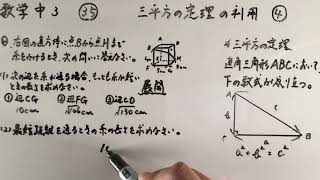 数学中3 ㉟ 三平方の定理の利用 ④
◎. 右図の直方体に点Bから点Hまで
糸をかけるとき、次の問いに答えなさい。
(1) 次の辺を糸が通る場合、もっとも糸が短い
ときの長さを求めなさい。 展開
① 辺CG ② 辺FG ③ 辺CD
10cm √106cm √130cm
(2) 最短距離を通るときの糸の長さを求めなさい。
10
三平方の定理
直角三角形ABCにおいて、
下の数式が成り立つ。
A
b
c
C
a
B
a²+b²=c²